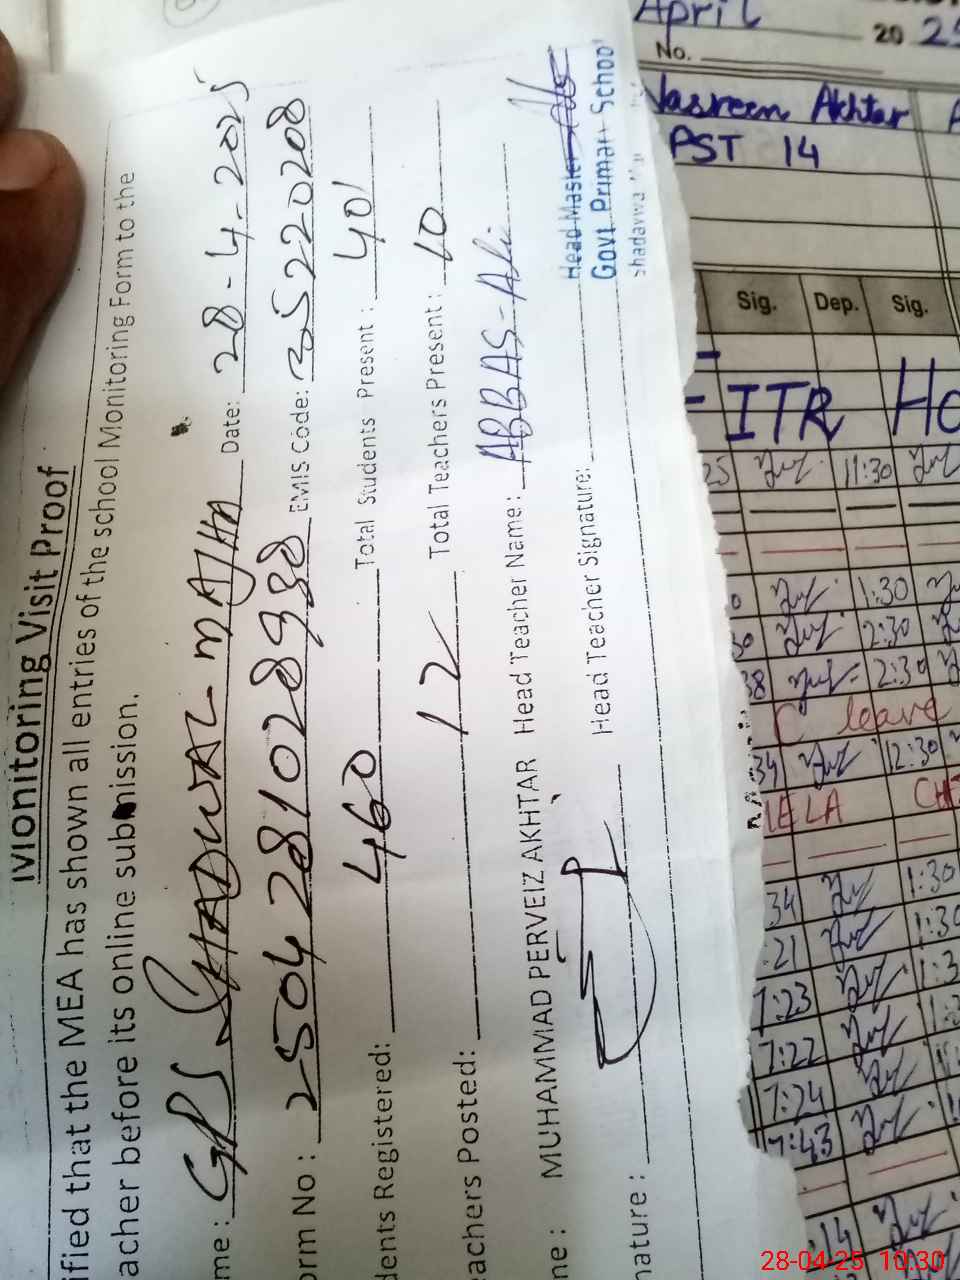 Monitoring Visit Proof
ified that the MEA has shown all entries of the school Monitoring Form to the
acher before its online submission.
me : GPS SHADIWAL-MAJHA Date: 28-4-2025
orm No : 2504281028938 EMIS Code: 35220208
dents Registered: 460 Total Students Present : 401
eachers Posted: 12 Total Teachers Present : 10
ne : MUHAMMAD PERVEIZ AKHTAR Head Teacher Name: ABBAS-Ali
nature : Head Teacher Signature:
Head Master
Govt Primary School
April 2025
No.
Nasreen Akhtar
PST 14
Sig. Dep. Sig.
FITR Ho
25 11:30
1:30
2:30
38 2:30
C leave
34 12:30
MELA
34 1:30
:21 1:30
7:23 1:3
7:22
7:24
7:43
:14
28-04-25 10:30